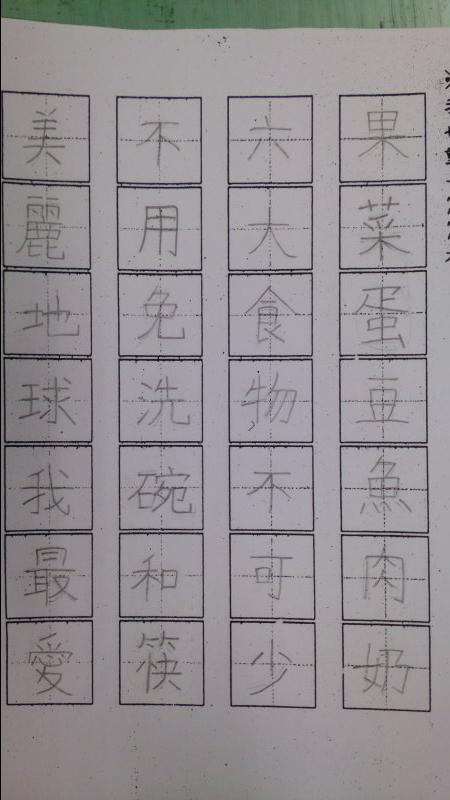 果菜蛋豆魚肉奶
六大食物不可少
不用免洗碗和筷
美麗地球我最愛